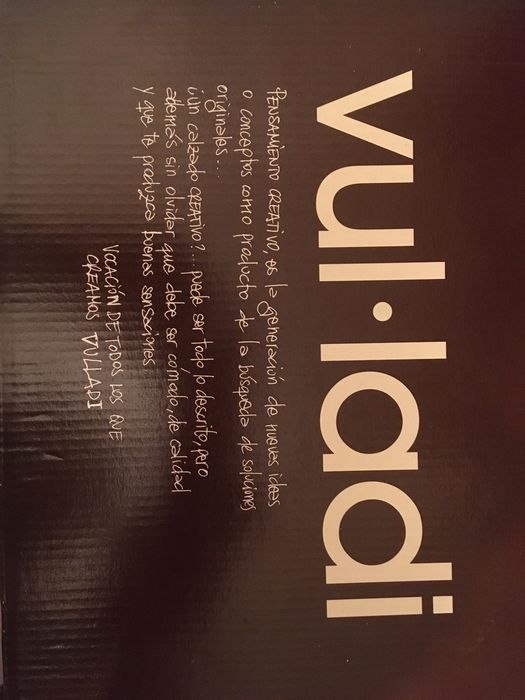 vul·ladi
PENSAMIENTO CREATIVO, es la generación de nuevas ideas
o conceptos como producto de la búsqueda de soluciones
originales...
¿un calzado CREATIVO?... puede ser todo lo descrito, pero
además sin olvidar que debe ser cómodo, de calidad
y que te produzca buenas sensaciones
VOCACIÓN DE TODOS LOS QUE
CREAMOS VULLADI